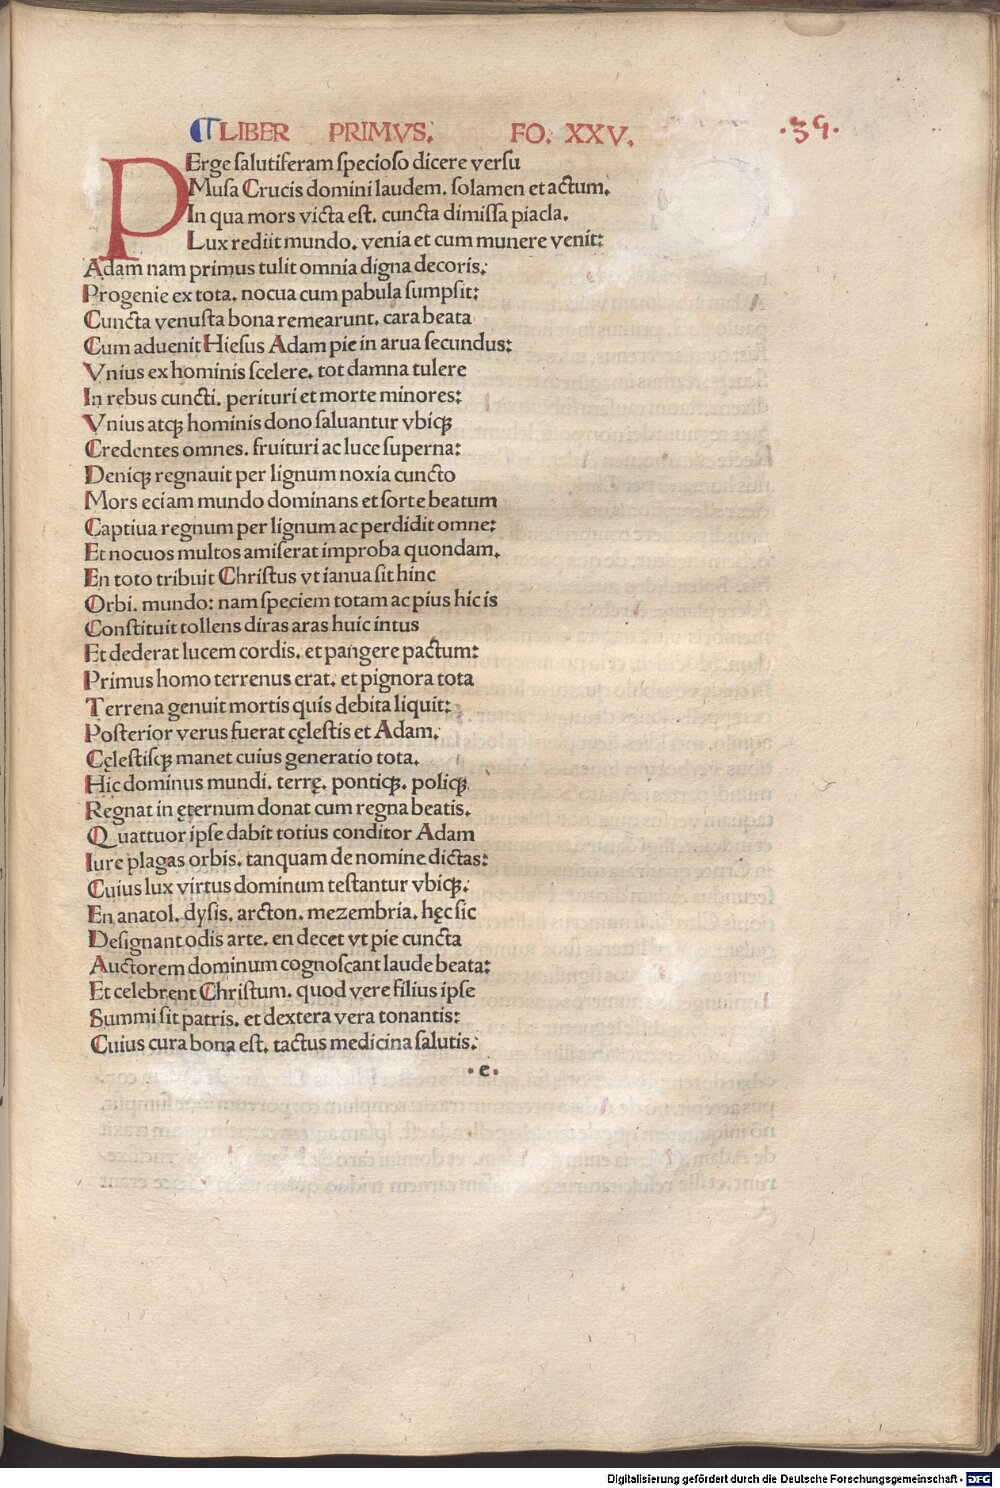 ¶ LIBER PRIMVS. FO. XXV. .39.
PErge salutiferam specioso dicere versu
Musa Crucis domini laudem. solamen et actum.
In qua mors victa est. cuncta dimissa piacla.
Lux rediit mundo. venia et cum munere venit:
Adam nam primus tulit omnia digna decoris.
Progenie ex tota. nocua cum pabula sumpsit:
Cuncta venusta bona remearunt. cara beata
Cum aduenit Hiesus Adam pie in arua secundus:
Vnius ex hominis scelere. tot damna tulere
In rebus cuncti. perituri et morte minores:
Vnius atqꝫ hominis dono saluantur vbiqꝫ
Credentes omnes. fruituri ac luce superna:
Deniqꝫ regnauit per lignum noxia cuncto
Mors eciam mundo dominans et sorte beatum
Captiua regnum per lignum ac perdidit omne:
Et nocuos multos amiserat improba quondam.
En toto tribuit Christus vt ianua sit hinc
Orbi. mundo: nam speciem totam ac pius hic is
Constituit tollens diras aras huic intus
Et dederat lucem cordis. et pangere pactum:
Primus homo terrenus erat. et pignora tota
Terrena genuit mortis quis debita liquit:
Posterior verus fuerat cęlestis et Adam.
Cęlestisqꝫ manet cuius generatio tota.
Hic dominus mundi. terrę. pontiqꝫ. poliqꝫ
Regnat in ęternum donat cum regna beatis.
Quattuor ipse dabit totius conditor Adam
Iure plagas orbis. tanquam de nomine dictas:
Cuius lux virtus dominum testantur vbiqꝫ.
En anatol. dysis. arcton. mezembria. hęc sic
Designant odis arte. en decet vt pie cuncta
Auctorem dominum cognoscant laude beata:
Et celebrent Christum. quod vere filius ipse
Summi sit patris. et dextera vera tonantis:
Cuius cura bona est. tactus medicina salutis.
.e.
Digitalisierung gefördert durch die Deutsche Forschungsgemeinschaft - DFG